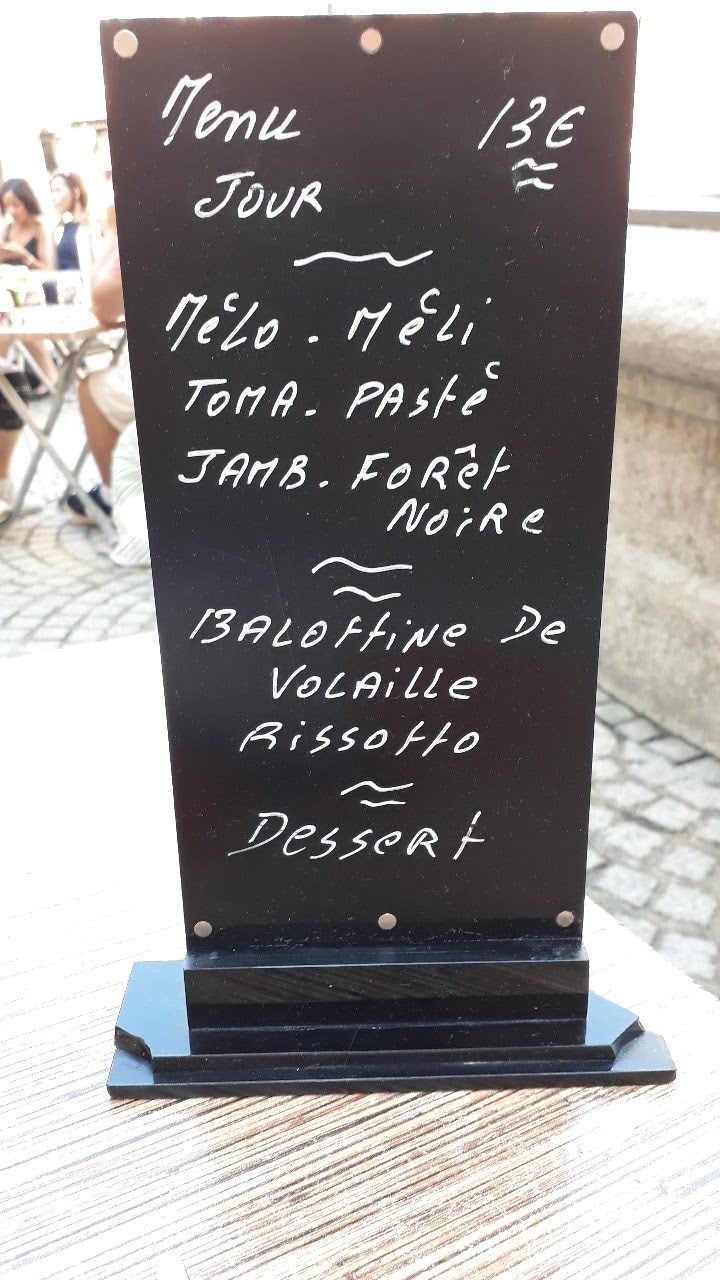 Menu 13€
JOUR
Mélo. Méli
TOMA. PASté
JAMB. FORêt
NoiRe
BALOttiNe De
VOLAille
Rissotto
Dessert